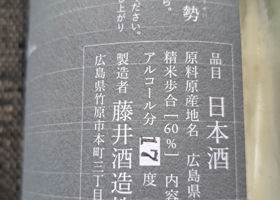 品目 日本酒
原料原産地名 広島県
精米歩合［60%］ 内容
アルコール分 17 度
製造者 藤井酒造
広島県竹原市本町三丁目
勢
ください。
上がり